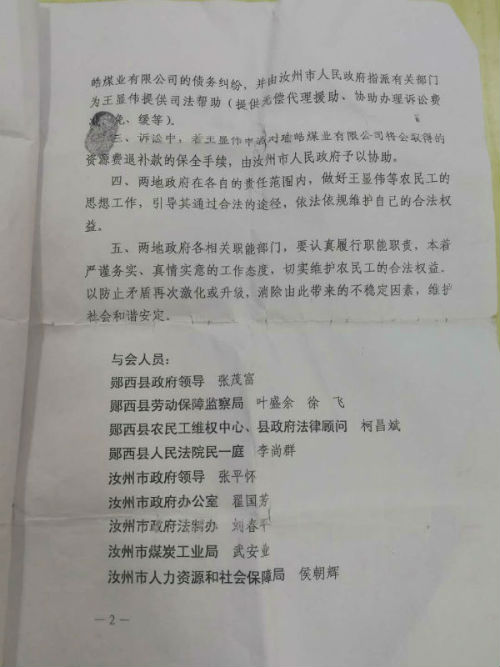 皓煤业有限公司的债务纠纷，并由汝州市人民政府指派有关部门
为王显伟提供司法帮助（提供无偿代理援助、协助办理诉讼费
免、缓等）。
三、诉讼中，若王显伟申请对瑜皓煤业有限公司将会取得的
资源费退补款的保全手续，由汝州市人民政府予以协助。
四、两地政府在各自的责任范围内，做好王显伟等农民工的
思想工作，引导其通过合法的途径，依法依规维护自己的合法权
益。
五、两地政府各相关职能部门，要认真履行职能职责，本着
严谨务实、真情实意的工作态度，切实维护农民工的合法权益。
以防止矛盾再次激化或升级，消除由此带来的不稳定因素，维护
社会和谐安定。
与会人员：
郧西县政府领导 张茂富
郧西县劳动保障监察局 叶盛余 徐 飞
郧西县农民工维权中心、县政府法律顾问 柯昌斌
郧西县人民法院民一庭 李尚群
汝州市政府领导 张平怀
汝州市政府办公室 翟国芳
汝州市政府法制办 刘春平
汝州市煤炭工业局 武安业
汝州市人力资源和社会保障局 侯朝辉
—2—